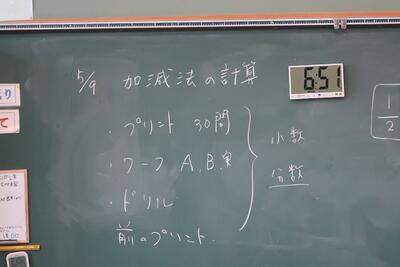 5/9 加減法の計算
6:51
・プリント 30問
・ワーク A,B,実
・ドリル
前のプリント
小数
分数
1/2
て